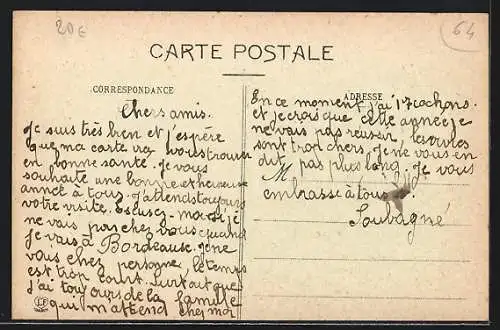 20€
64
CARTE POSTALE
CORRESPONDANCE
ADRESSE
Chers amis.
Je suis très bien et j'espère
que ma carte va vous trouver
en bonne santé. Je vous
souhaite une bonne et heureuse
année à tous. J'attends toujours
votre visite. Escusez-moi si je
ne vais pas chez vous quand
je vais à Bordeause. Je ne
vous chez personne, le temps
est trop court. Surtout que
j'ai toujours de la famille
qui m'attend chez moi
En ce moment j'ai 17 cochons.
et je crois que cette année je
ne vais pas reuseur, les
sont trop chers, je ne vous en
dit pas plus long. Je vous
M
embrasse à tous.
Soubagné
LF